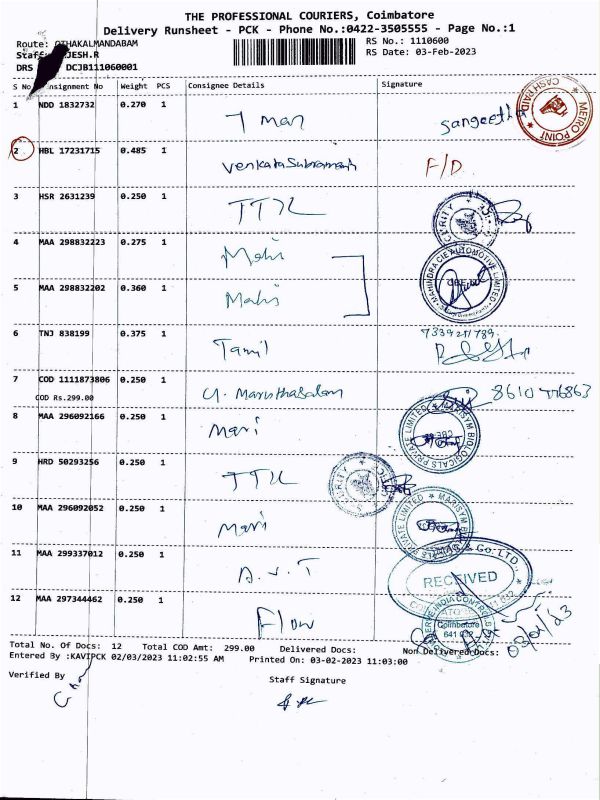 THE PROFESSIONAL COURIERS, Coimbatore
Delivery Runsheet - PCK - Phone No.:0422-3505555 - Page No.:1
Route: OTHAKALMANDABAM RS No.: 1110600
JESH.R RS Date: 03-Feb-2023
DRS DCJB111060001
S No Consignment No Weight PCS Consignee Details Signature
1 NDD 1832732 0.270 1 T Man Sangeetha
METRO POINT CASH PAID
2 HBL 17231715 0.485 1 Venkatasubramani F/D.
3 HSR 2631239 0.250 1 TTK
4 MAA 298832223 0.275 1 Mahi
MAHINDRA CIE AUTOMOTIVE LIMITED
5 MAA 298832202 0.360 1 Mahi
6 TNJ 838199 0.375 1 Tamil
7 COD 1111873806 0.250 1 Maruthasalam
COD Rs.299.00
8 MAA 296092166 0.250 1 Mari
MARISYM BIOLOGICALS PRIVATE LIMITED
9 HRD 50293256 0.250 1 TTK
10 MAA 296092052 0.250 1 Mari
11 MAA 299337012 0.250 1 A.V.T
& Co. LTD.
RECEIVED
12 MAA 297344462 0.250 1 Flow
INDIA CONTROLS
Coimbatore
641
Total No. Of Docs: 12 Total COD Amt: 299.00 Delivered Docs: Non Delivered Docs:
Entered By :KAVIPCK 02/03/2023 11:02:55 AM Printed On: 03-02-2023 11:03:00
Verified By Staff Signature